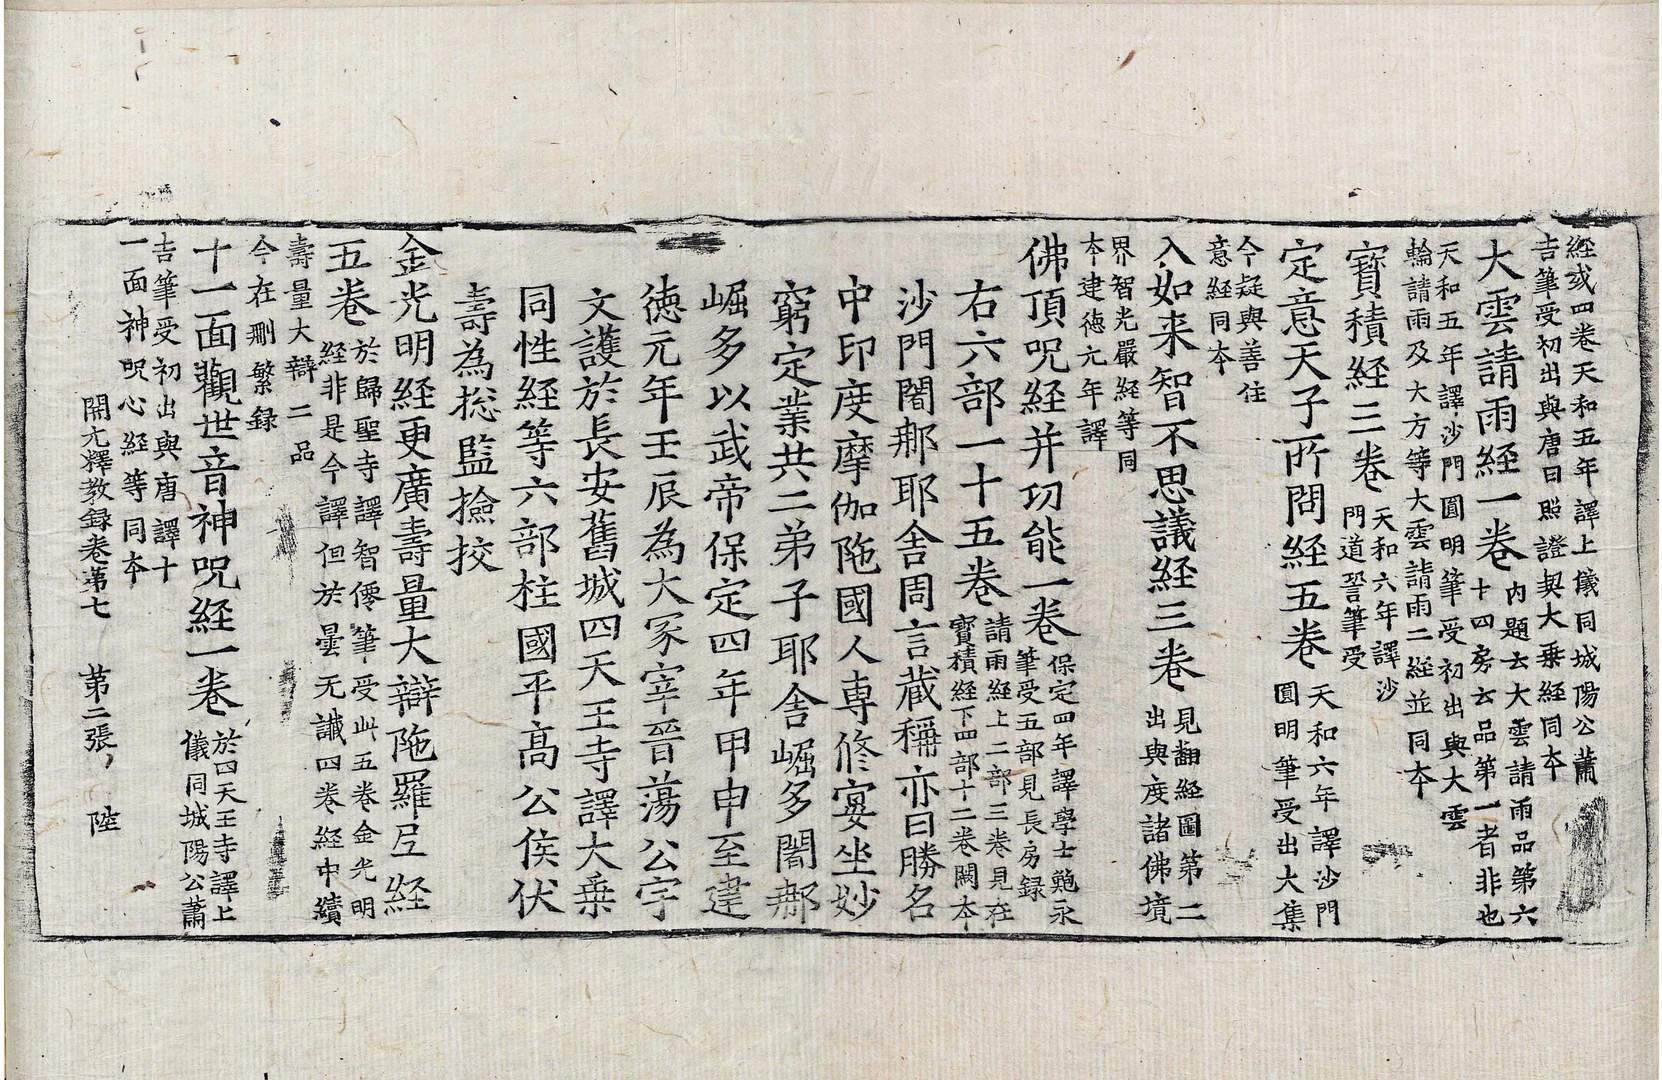 経或四卷天和五年譯上儀同城陽公蕭
吉筆受初出與唐日照證契大乗経同本
大雲請雨経一卷
内題云大雲請雨品第六
十四房云品第一者非也
天和五年譯沙門圓明筆受初出與大雲
輪請雨及大方等大雲請雨二経並同本
寳積経三卷
天和六年譯沙
門道䛑筆受
定意天子所問経五卷
天和六年譯沙門
圓明筆受出大集
今疑與善住
意経同本
入如来智不思議経三卷
見翻経圖第二
出與度諸佛境
界智光嚴経等同
本建徳元年譯
佛頂呪経并㓛能一卷
保定四年譯學士鮑永
筆受五部見長房録
右六部一十五卷
請雨経上二部三卷見在
寳積経下四部十二卷闕本
沙門闍那耶舍周言蔵稱亦曰勝名
中印度摩伽陁國人専修宴坐妙
窮定業共二弟子耶舍崛多闍那
崛多以武帝保定四年甲申至建
徳元年壬辰為大冢宰晉蕩公宇
文護於長安舊城四天王寺譯大乗
同性経等六部柱國平髙公侯伏
壽為捴監撿挍
金光明経更廣壽量大辯陁羅尼経
五卷
於歸聖寺譯智僊筆受此五卷金光明
経非是今譯但於曇无讖四卷経中續
壽量大辯二品
今在刪繁録
十一面觀世音神呪経一卷
於四天王寺譯上
儀同城陽公蕭
吉筆受初出與唐譯十
一面神呪心経等同本
開元釋教録卷第七　第二張　陸